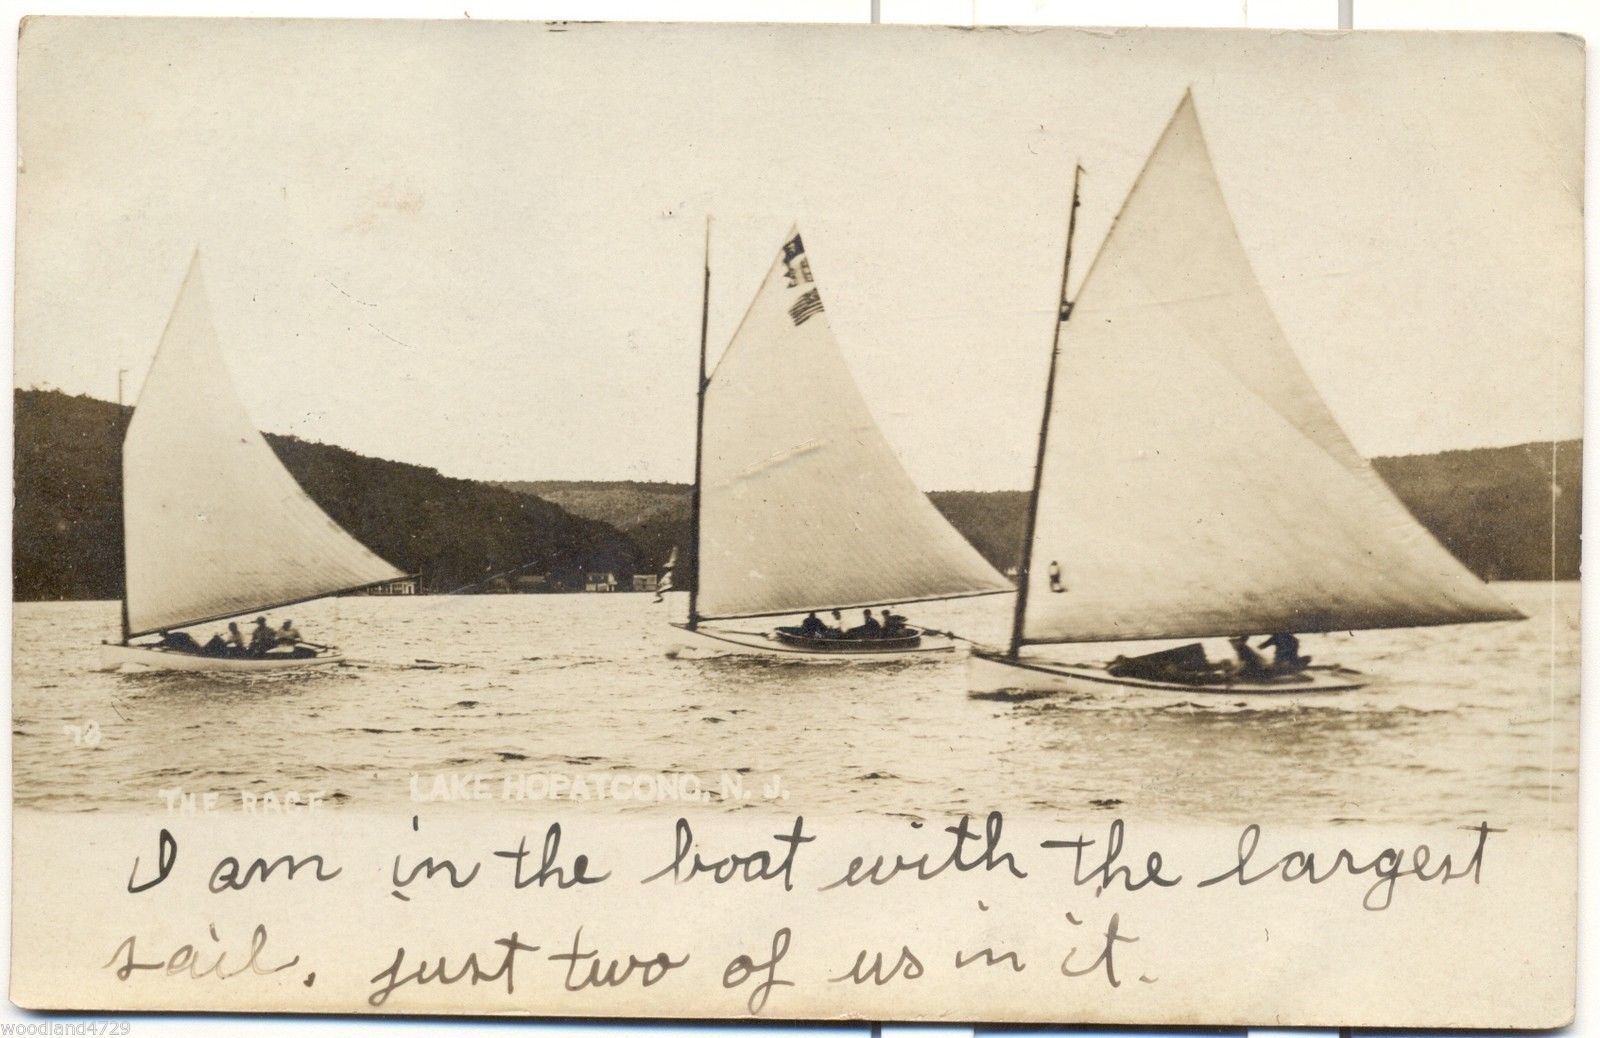 78
THE RACE LAKE HOPATCONG, N. J.
I am in the boat with the largest
sail. just two of us in it.
woodland4729